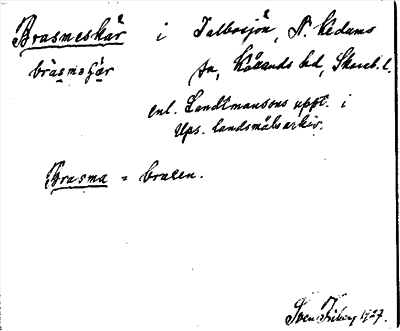 Brasmeskär i Valbosjön, N. Kedums
bräsmeʃär sn, Kållands hd, Skarab. l.
enl. Landtmansons uppt. i
Ups. landsmålsarkiv.
Brasma = braxen.
Sven Friberg 1927.